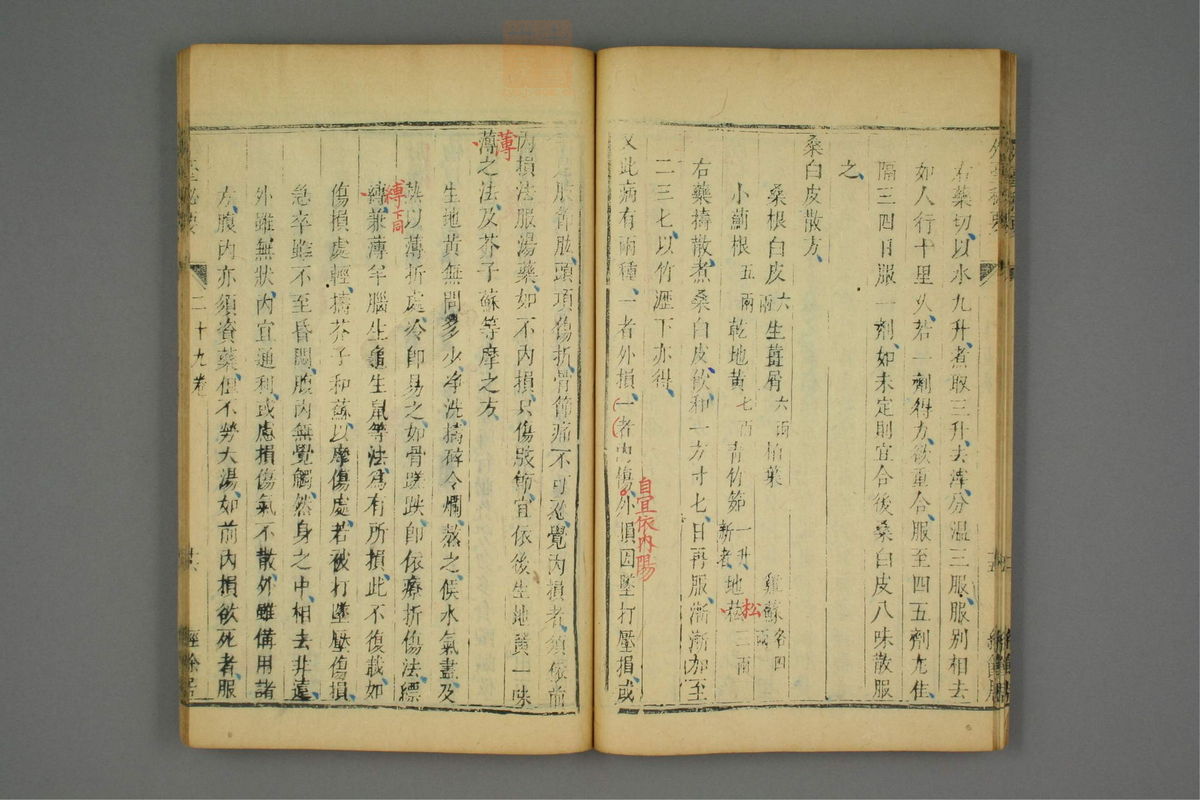 右藥切以水九升煮取三升去滓分溫三服服別相去
如人行十里久若一劑得力欲重合服至四五劑尤佳
隔三四日服一劑如未定則宜合後桑白皮八味散服
之
桑白皮散方
桑根白皮六兩 生薑屑六兩 柏葉 雞蘇各四兩
小薊根五兩 乾地黃七兩 青竹茹一升新者 地松三兩
松
右藥擣散煮桑白皮飲和一方寸七日再服漸漸加至
二三七以竹瀝下亦得
又此病有兩種一者外損一者內傷外損因墜打壓損或
自宜依內
手足肢節肱頭項傷折骨節痛不可忍覺內損者須依前
內損法服湯藥如不內損只傷肢節宜依後生地黃一味
薄
薄之法及芥子蘇等摩之方
生地黃無問多少淨洗擣碎令爛蒸之候水氣盡及
熱以薄折處冷即易之如骨蹉跌即依療折傷法縹
縛下同
縛兼薄羊腦生龜生鼠等法為有所損此不復載如
傷損處輕擣芥子和蘇以摩傷處若被打墜壓傷損
急卒雖不至昏悶腹內無覺觸然身之中相去非遠
外雖無狀內宜通利或慮損傷氣不散外雖備用諸
方腹內亦須資藥但不勞大湯如前內損欲死者服
二十九卷
經餘居